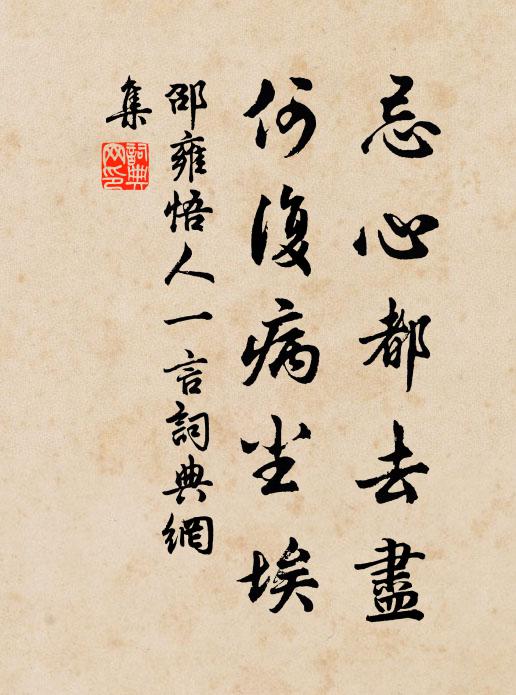 忌心都去盡
何復病尘埃
邵雍悟人一言詞典網
集
詞典
网印